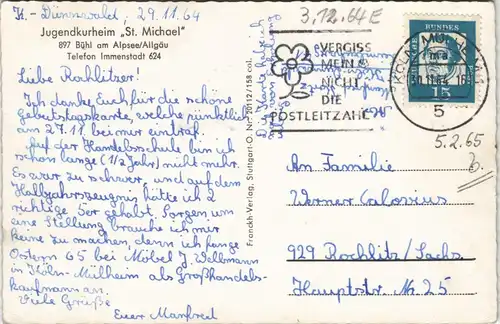 K.-Dünnwald, 29.11.64
Jugendkurheim „St. Michael"
897 Bühl am Alpsee/Allgäu
Telefon Immenstadt 624
Liebe Rochlitzer!
Ich danke Euch für die schöne
Geburtstagskarte, welche pünktlich
am 27.11 bei mir eintraf.
Auf der Handelsschule bin ich
schon lange (1/2 Jahr) nicht mehr.
Es war zu schwer, und auf dem
Halbjahrszeugnis hätte ich 2
richtige 5er gehabt. Sorgen um
eine Stellung brauche ich mir
keine zu machen, denn ich fange
Ostern 65 bei Möbel J. Welbmann
in Köln-Mülheim als Großhandels-
kaufmann an.
Viele Grüße
Euer Manfred
Franckh-Verlag, Stuttgart-O. Nr. 20112/158 col.
Die Karte hatte ich
3.12.64E
VERGISS
MEIN
NICHT
DIE
POSTLEITZAHL
DEUTSCHE BUNDESPOST
15
KÖLN-MÜLHEIM
30.11.64
5
5.2.65
b.
An Familie
Werner Calovius
929 Rochlitz/Sachs
Hauptstr. Nr. 25